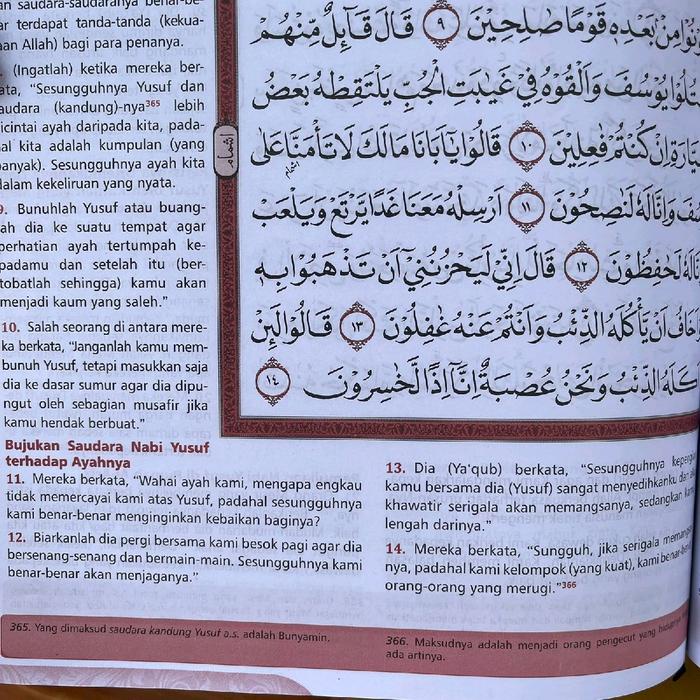 an saudara-saudaranya benar-be-
ar terdapat tanda-tanda (kekua-
aan Allah) bagi para penanya.
(Ingatlah) ketika mereka ber-
ata, “Sesungguhnya Yusuf dan
audara (kandung)-nya365 lebih
icintai ayah daripada kita, pada-
al kita adalah kumpulan (yang
banyak). Sesungguhnya ayah kita
dalam kekeliruan yang nyata.
9. Bunuhlah Yusuf atau buang-
ah dia ke suatu tempat agar
perhatian ayah tertumpah ke-
padamu dan setelah itu (ber-
tobatlah sehingga) kamu akan
menjadi kaum yang saleh.”
10. Salah seorang di antara mere-
ka berkata, “Janganlah kamu mem-
bunuh Yusuf, tetapi masukkan saja
dia ke dasar sumur agar dia dipu-
ngut oleh sebagian musafir jika
kamu hendak berbuat.”
مِنْ بَعْدِهٖ قَوْمًا صٰلِحِيْنَ ٩ قَالَ قَاۤىِٕلٌ مِّنْهُمْ
يُوْسُفَ وَاَلْقُوْهُ فِيْ غَيٰبَتِ الْجُبِّ يَلْتَقِطْهُ بَعْضُ
اِنْ كُنْتُمْ فٰعِلِيْنَ ١٠ قَالُوْا يٰٓاَبَانَا مَا لَكَ لَا تَأْمَنَّا عَلٰى
اشمام
اشمام
وَاِنَّا لَهٗ لَنٰصِحُوْنَ ١١ اَرْسِلْهُ مَعَنَا غَدًا يَّرْتَعْ وَيَلْعَبْ
لَهٗ لَحٰفِظُوْنَ ١٢ قَالَ اِنِّيْ لَيَحْزُنُنِيْٓ اَنْ تَذْهَبُوْا بِهٖ
اَنْ يَّأْكُلَهُ الذِّئْبُ وَاَنْتُمْ عَنْهُ غٰفِلُوْنَ ١٣ قَالُوْا لَىِٕنْ
الذِّئْبُ وَنَحْنُ عُصْبَةٌ اِنَّآ اِذًا لَّخٰسِرُوْنَ ١٤
Bujukan Saudara Nabi Yusuf
terhadap Ayahnya
11. Mereka berkata, “Wahai ayah kami, mengapa engkau
tidak memercayai kami atas Yusuf, padahal sesungguhnya
kami benar-benar menginginkan kebaikan baginya?
12. Biarkanlah dia pergi bersama kami besok pagi agar dia
bersenang-senang dan bermain-main. Sesungguhnya kami
benar-benar akan menjaganya.”
13. Dia (Ya‘qub) berkata, “Sesungguhnya
kamu bersama dia (Yusuf) sangat menyedihkanku dan
khawatir serigala akan memangsanya, sedangkan
lengah darinya.”
14. Mereka berkata, “Sungguh, jika serigala
nya, padahal kami kelompok (yang kuat), kami
orang-orang yang merugi.”366
365. Yang dimaksud saudara kandung Yusuf a.s. adalah Bunyamin.
366. Maksudnya adalah menjadi orang pengecut yang hidupnya
ada artinya.